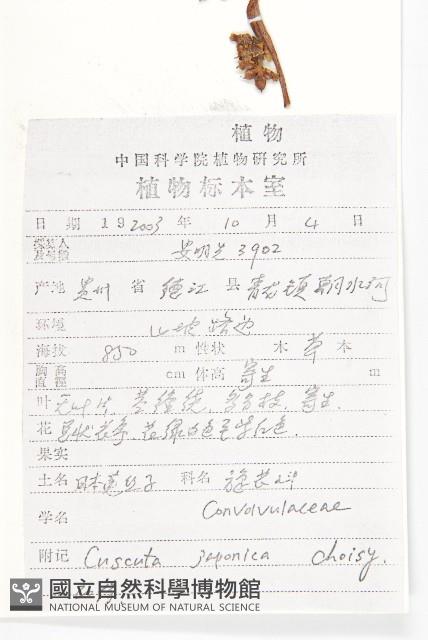 植物
中国科学院植物研究所
植物标本室
日 期 19 2003 年 10 月 4 日
采集人及号数 安明先 3902
产地 贵州 省 德江 县 青龙镇 朝水河
环境 山坡路边
海拔 850 m 性状 木 草 本
胸高直径 cm 体高 寄生 m
叶 无叶片, 茎缠绕, 多分枝, 寄生.
花
果实
土名 日本菟丝子 科名 旋花科
学名 Convolvulaceae
附记 Cuscuta japonica Choisy.
國立自然科學博物館
NATIONAL MUSEUM OF NATURAL SCIENCE